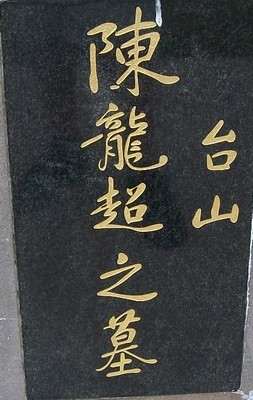 台山
陳龍超之墓